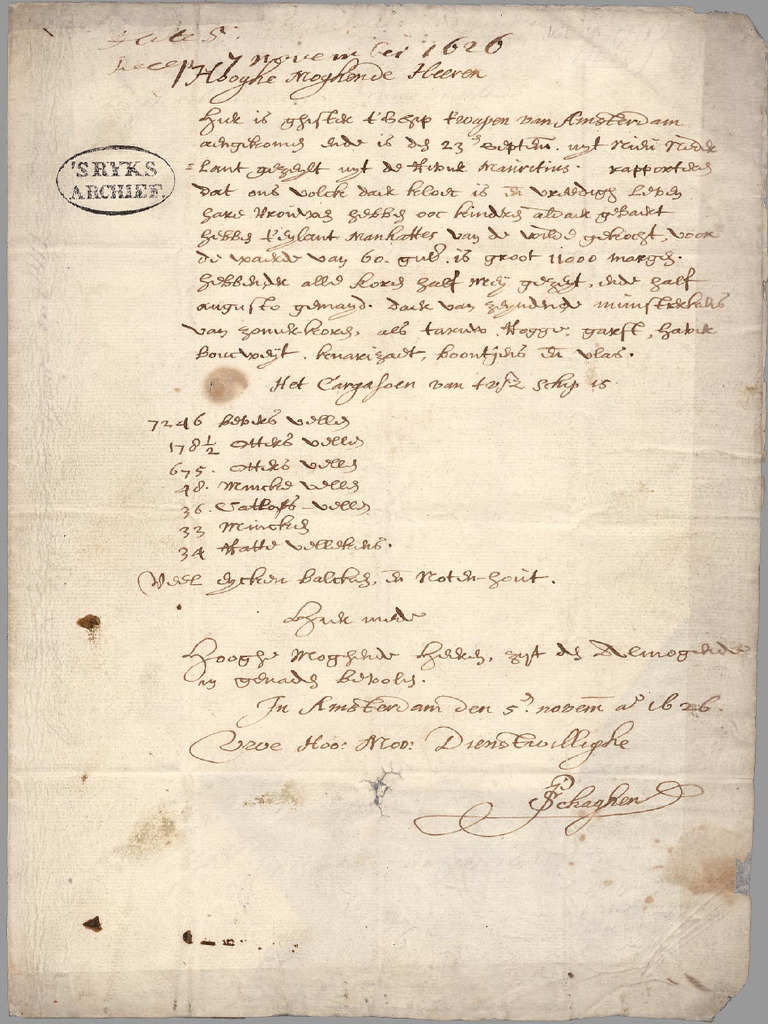 Recep. 7 november 1626
Hooghe Moghende Heeren
Hier is ghister t'Schip t'wapen van Amsterdam
aengekomen ende is den 23en septem. uyt Nieu Neder
=Lant gezeylt uyt de Rivier Mauritius. rapporteren
dat ons volck daer kloec is en vreedigh leven
hare Vrouwen hebben ooc kinderen aldaer gebaert
hebben t'eylant Manhattes van de wilde gekocht, voor
de waerde van 60. guld. is groot 11000 morgen.
hebbende alle koren half Mey gezeyt, ende half
augusto gemayd. daer van zeyndende munsterkens
van zomerkoren, als tarwe, Rogge, garst, haver
boucweyt, knarizaet, boontjens en vlas.
Het Cargasoen van tvsz Schip is
7246 bevers vellen
178½ Otters vellen
675. Otters vellen
48. Mincke vellen
36. Catloes vellen
33 Mincken
34 Ratte vellekens.
Veel eycken balcken, en Noten-hout.
Hier mede
Hooghe Moghende Heeren, zyt den Almogende
in genaden bevolen.
In Amsterdam den 5en novem ao 1626.
Uwe Hoo: Moo: Dienstwillighe
PSchaghen
'SRYKS
ARCHIEF.